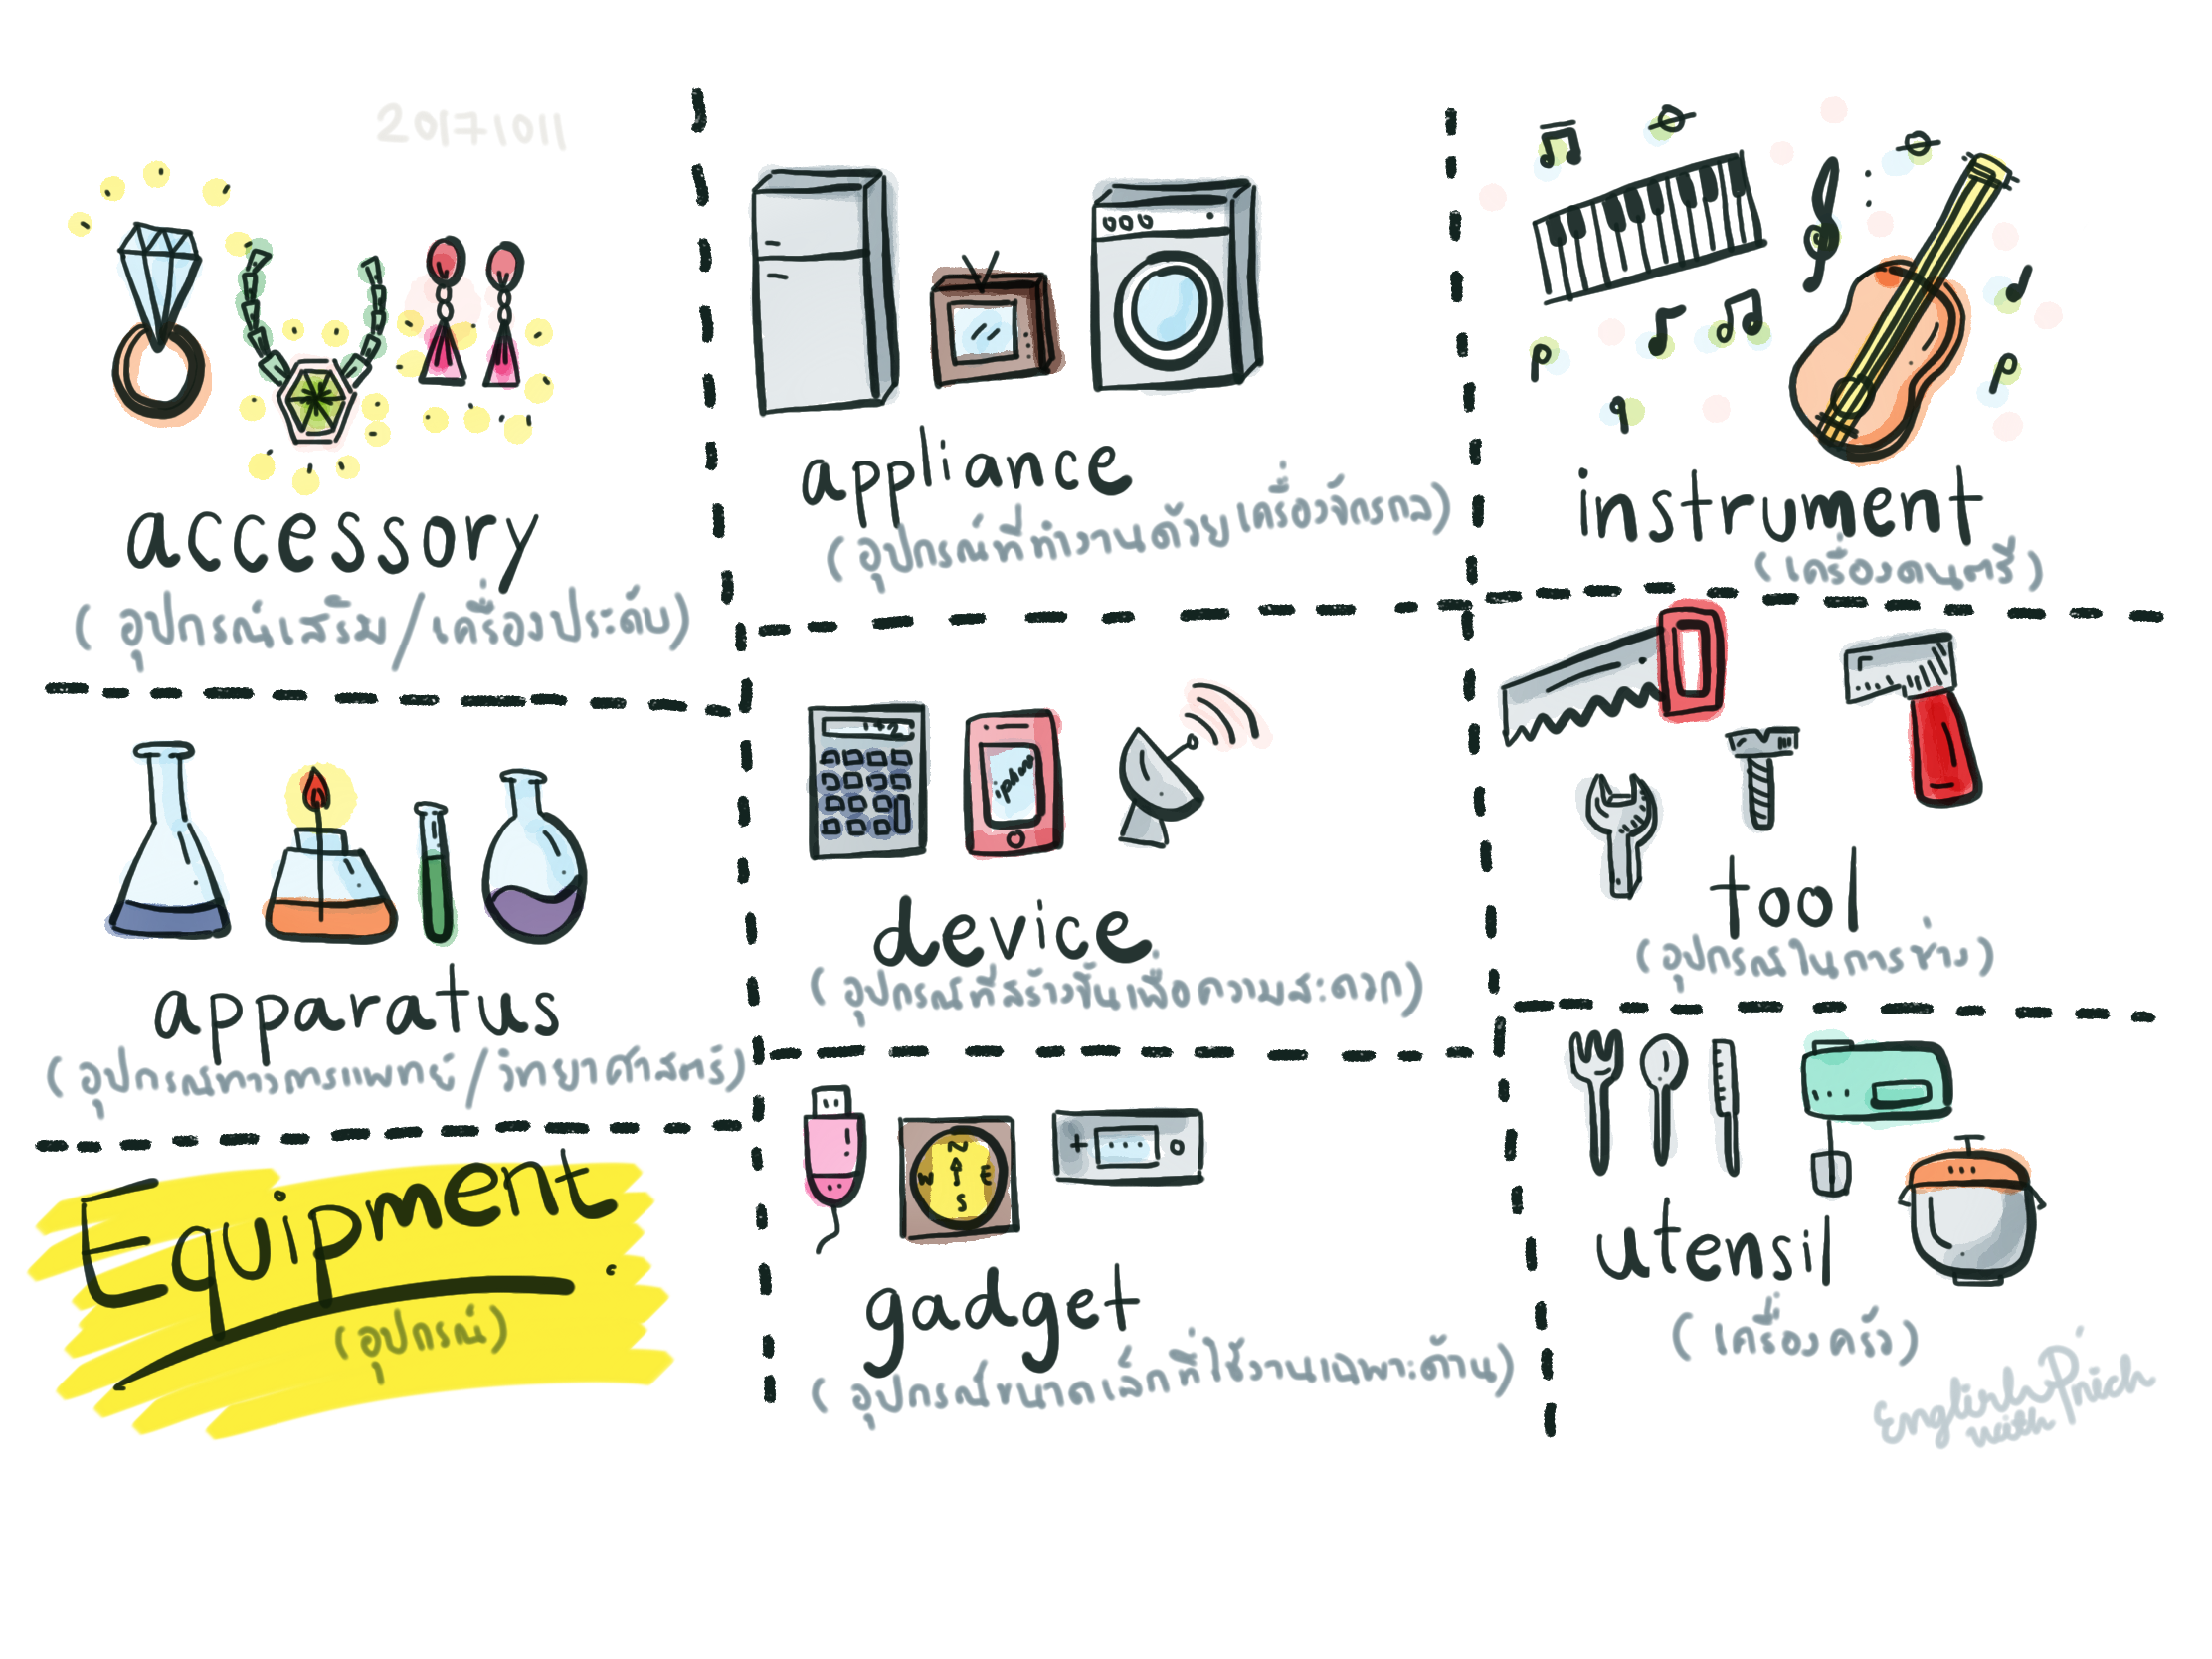 20171011
accessory
(อุปกรณ์เสริม/เครื่องประดับ)
apparatus
(อุปกรณ์ทางการแพทย์/วิทยาศาสตร์)
Equipment.
(อุปกรณ์)
appliance
(อุปกรณ์ที่ทำงานด้วยเครื่องจักรกล)
1+2
iphone
device
(อุปกรณ์ที่สร้างขึ้นเพื่อความสะดวก)
N
W E
S
gadget
(อุปกรณ์ขนาดเล็กที่ใช้งานเฉพาะด้าน)
instrument
(เครื่องดนตรี)
tool
(อุปกรณ์ในการช่าง)
utensil
(เครื่องครัว)
English Prich
with